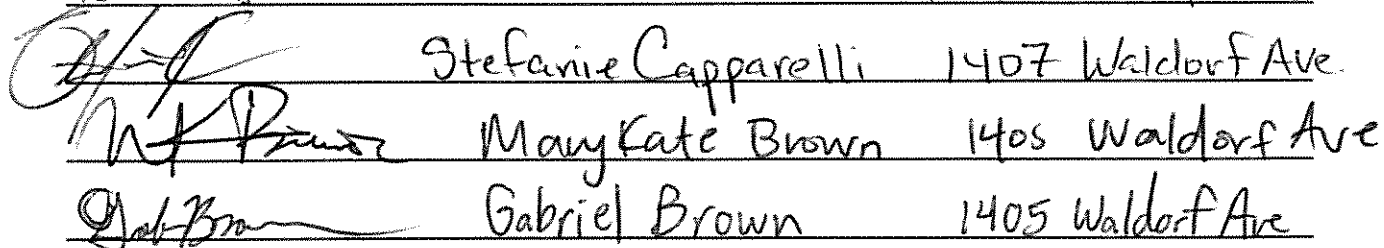 Stefanie Capparelli 1407 Waldorf Ave.
MaryKate Brown 1405 Waldorf Ave
Gabriel Brown 1405 Waldorf Ave